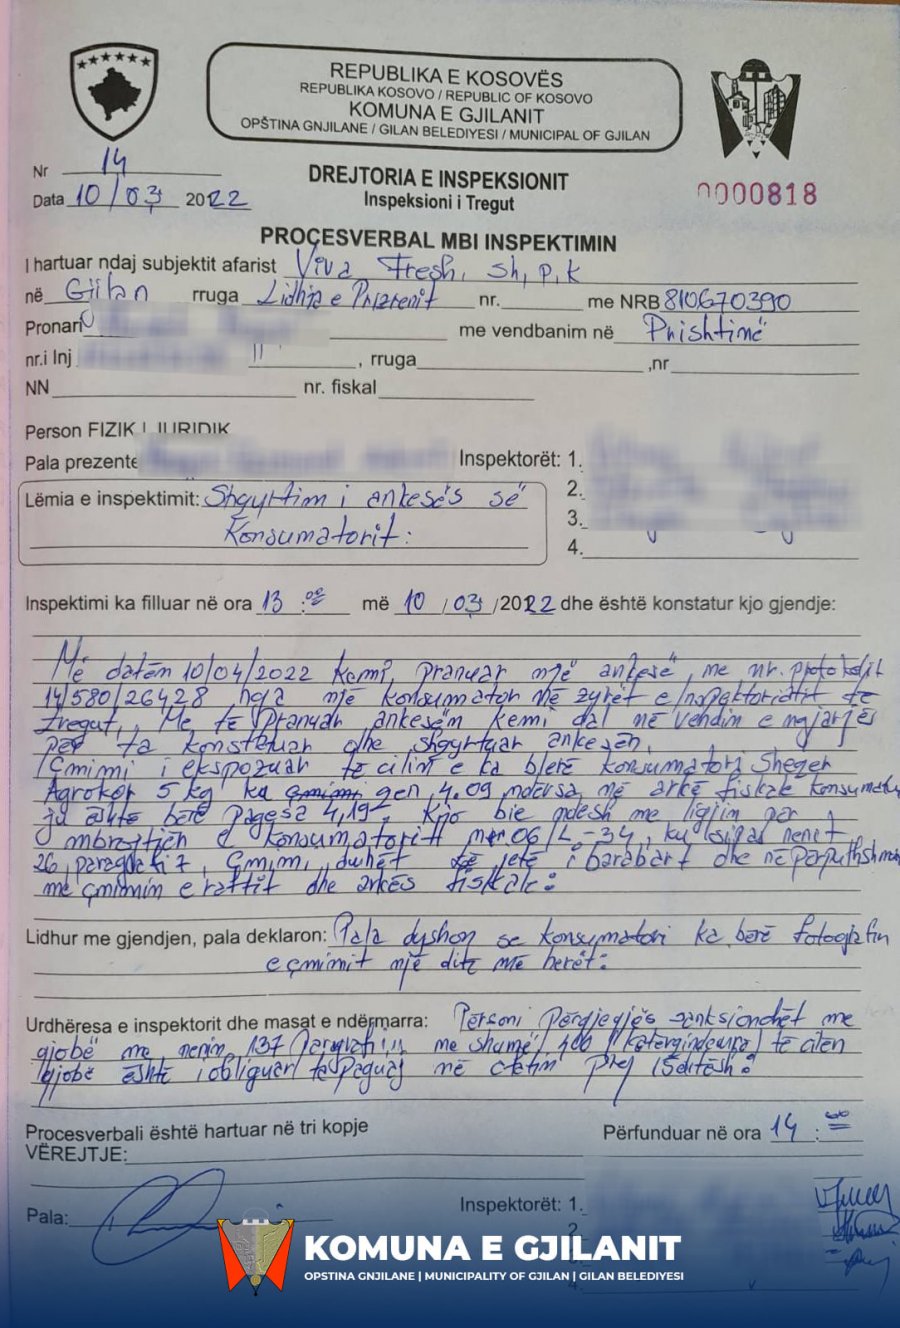 REPUBLIKA E KOSOVËS
REPUBLIKA KOSOVO / REPUBLIC OF KOSOVO
KOMUNA E GJILANIT
OPŠTINA GNJILANE / GILAN BELEDIYESI / MUNICIPAL OF GJILAN
Nr 14
Data 10/03 2022
DREJTORIA E INSPEKSIONIT
Inspeksioni i Tregut
0000818
PROÇESVERBAL MBI INSPEKTIMIN
I hartuar ndaj subjektit afarist Viva Fresh, sh,p,k
në Gjilan rruga Lidhja e Prizrenit nr. me NRB 810670390
Pronari me vendbanim në Prishtinë
nr.i Inj , rruga ,nr
NN nr. fiskal
Person FIZIK JURIDIK
Pala prezente Inspektorët: 1.
2.
3.
4.
Lëmia e inspektimit: Shqyrtim i ankesës së
Konsumatorit:
Inspektimi ka filluar në ora 13:00 më 10/03/2022 dhe është konstatur kjo gjendje:
Më datën 10/04/2022 kemi pranuar një ankesë me nr. protokollit
14/580/26428 nga një konsumator në zyrët e Inspektoriatit të
tregut, Me të pranuar ankesën kemi dal në vendin e ngjarjës
për ta konstatuar dhe shqyrtuar ankesën,
Çmimi i ekspozuar të cilin e ka blerë konsumatori Sheqer
Agrokor 5 kg ka qen 4.09 ndërsa në arkë fiskale konsumatori
është bërë pagesa 4,19, kjo bie ndesh me ligjin për
mbrojtjen e konsumatorit nr.06/L-34, ku sipas nenit
26, paragrafi 7, Çmimi duhet të jetë i barabart dhe në përputhshmëri
me çmimin e raftit dhe arkës fiskale:
Lidhur me gjendjen, pala deklaron: Pala dyshon se konsumatori ka bërë fotografin
e çmimit një ditë më herët:
Urdhëresa e inspektorit dhe masat e ndërmarra: Personi përgjegjës sanksionohët me
gjobë me nenin 137 me shumë 400 të cilen
gjobë është i obliguar ta paguaj në afatin prej 15 ditësh:
Procesverbali është hartuar në tri kopje Përfunduar në ora 14:00
VËREJTJE:
Pala: Inspektorët: 1.
2.
4.
KOMUNA E GJILANIT
OPSTINA GNJILANE | MUNICIPALITY OF GJILAN | GILAN BELEDIYESI